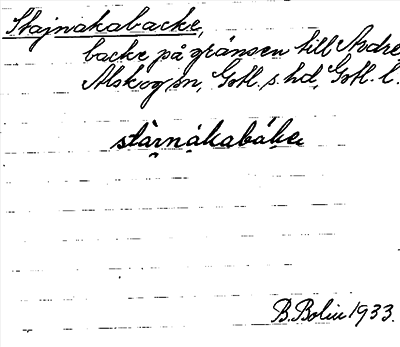 Stajnakabacke,
backe på gränsen till Ardre
Alskog sn, Gotl. s. hd, Gotl. l.
stàrnákabáke
B. Bolin 1933.